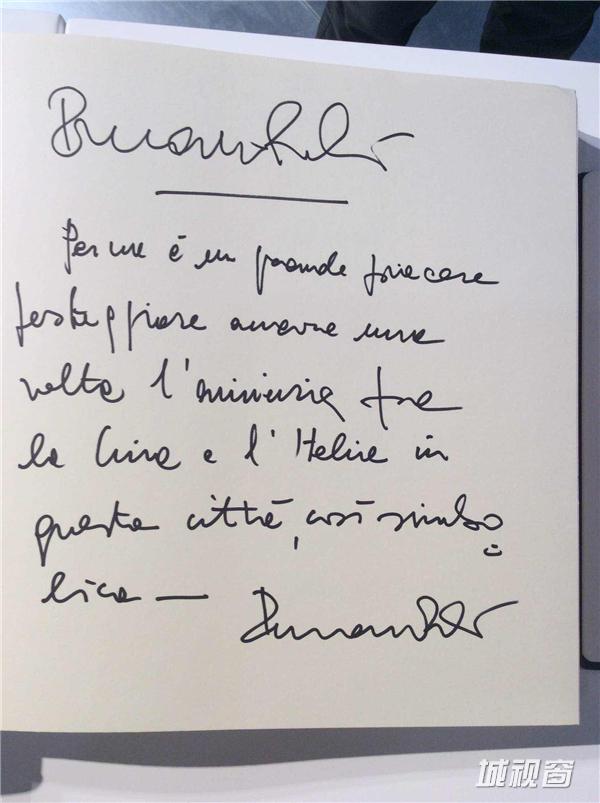 Per me è un grande piacere
festeggiare ancora una
volta l'amicizia fra
la Cina e l'Italia in
questa città, così simbo
lica —
城视窗